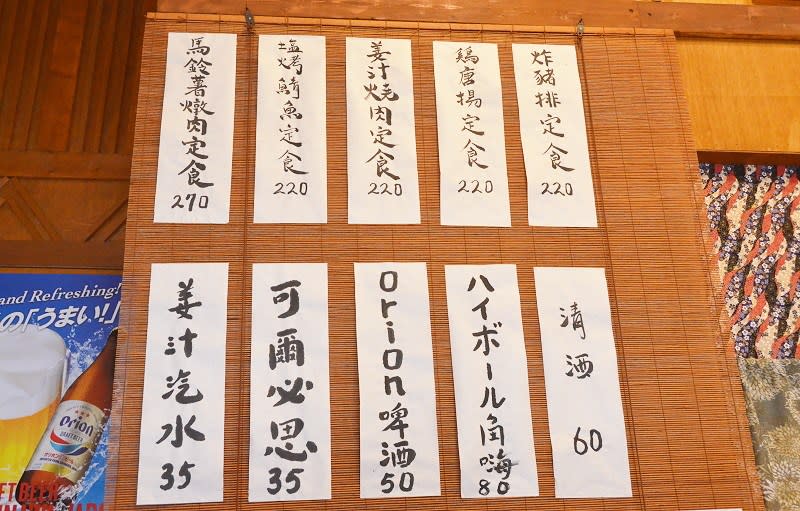 炸豬排定食 220
鶏唐揚定食 220
姜汁燒肉定食 220
塩烤鯖魚定食 220
馬鈴薯燉肉定食 270
清酒 60
ハイボール角嗨 80
orion啤酒 50
可爾必思 35
姜汁汽水 35
and Refreshing!
の「うまい!」
Orion
DRAFT BEER